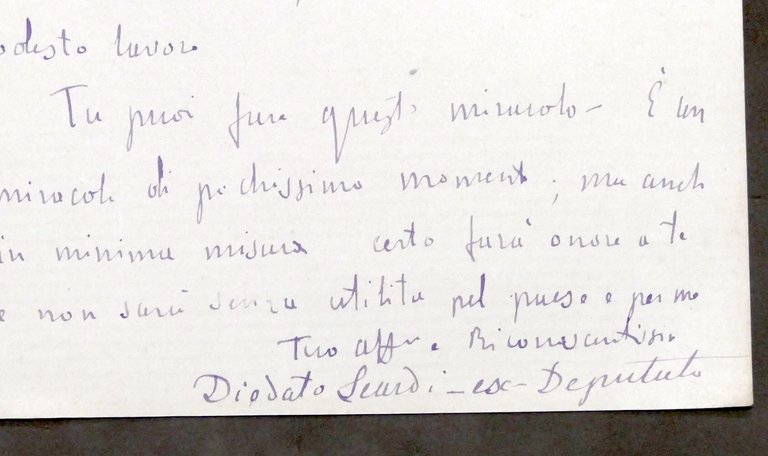 odesto lavoro
Tu puoi fare questo miracolo - È un
miracolo di pochissimo momento, ma anche
in minima misura certo farà onore a te
e non sarà senza utilità pel paese e per me
Tuo aff e Riconoscentissimo
Diodato - ex - Deputato